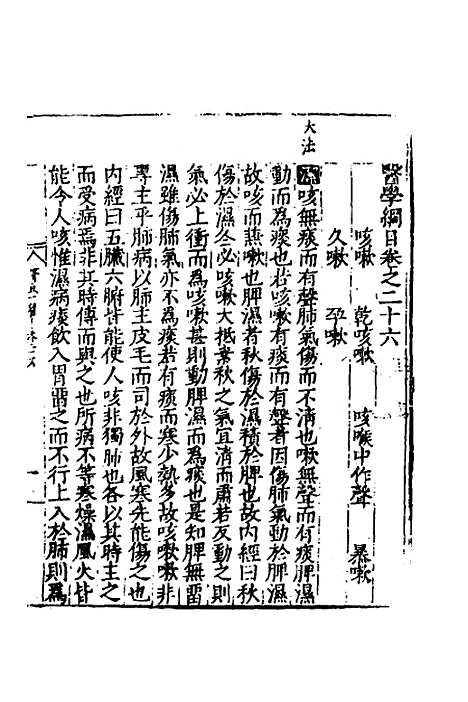 醫學綱目卷之二十六
咳嗽 乾咳嗽 咳喉中作聲 暴嗽
久嗽
大法
咳無痰而有聲肺氣傷而不清也嗽無聲而有痰脾濕
動而為痰也若咳嗽有痰而有聲者因傷肺氣動於脾濕
故咳而兼嗽也脾濕者秋傷於濕積於脾也故內經曰秋
傷於濕冬必咳嗽大抵素秋之氣宜清而肅若反動之則
氣必上衝而為咳嗽甚則動脾濕而為痰也是知脾無留
濕雖傷肺氣亦不為痰若有痰而寒少熱多故咳嗽嗽非
專主乎肺病以肺主皮毛而司於外故風寒先能傷之也
內經曰五臟六腑皆能使人咳非獨肺也各以其時主之
而受病焉非其時傳而與之也所病不等寒燥濕風火皆
能令人咳惟濕病痰飲入胃留之而不行上入於肺則為